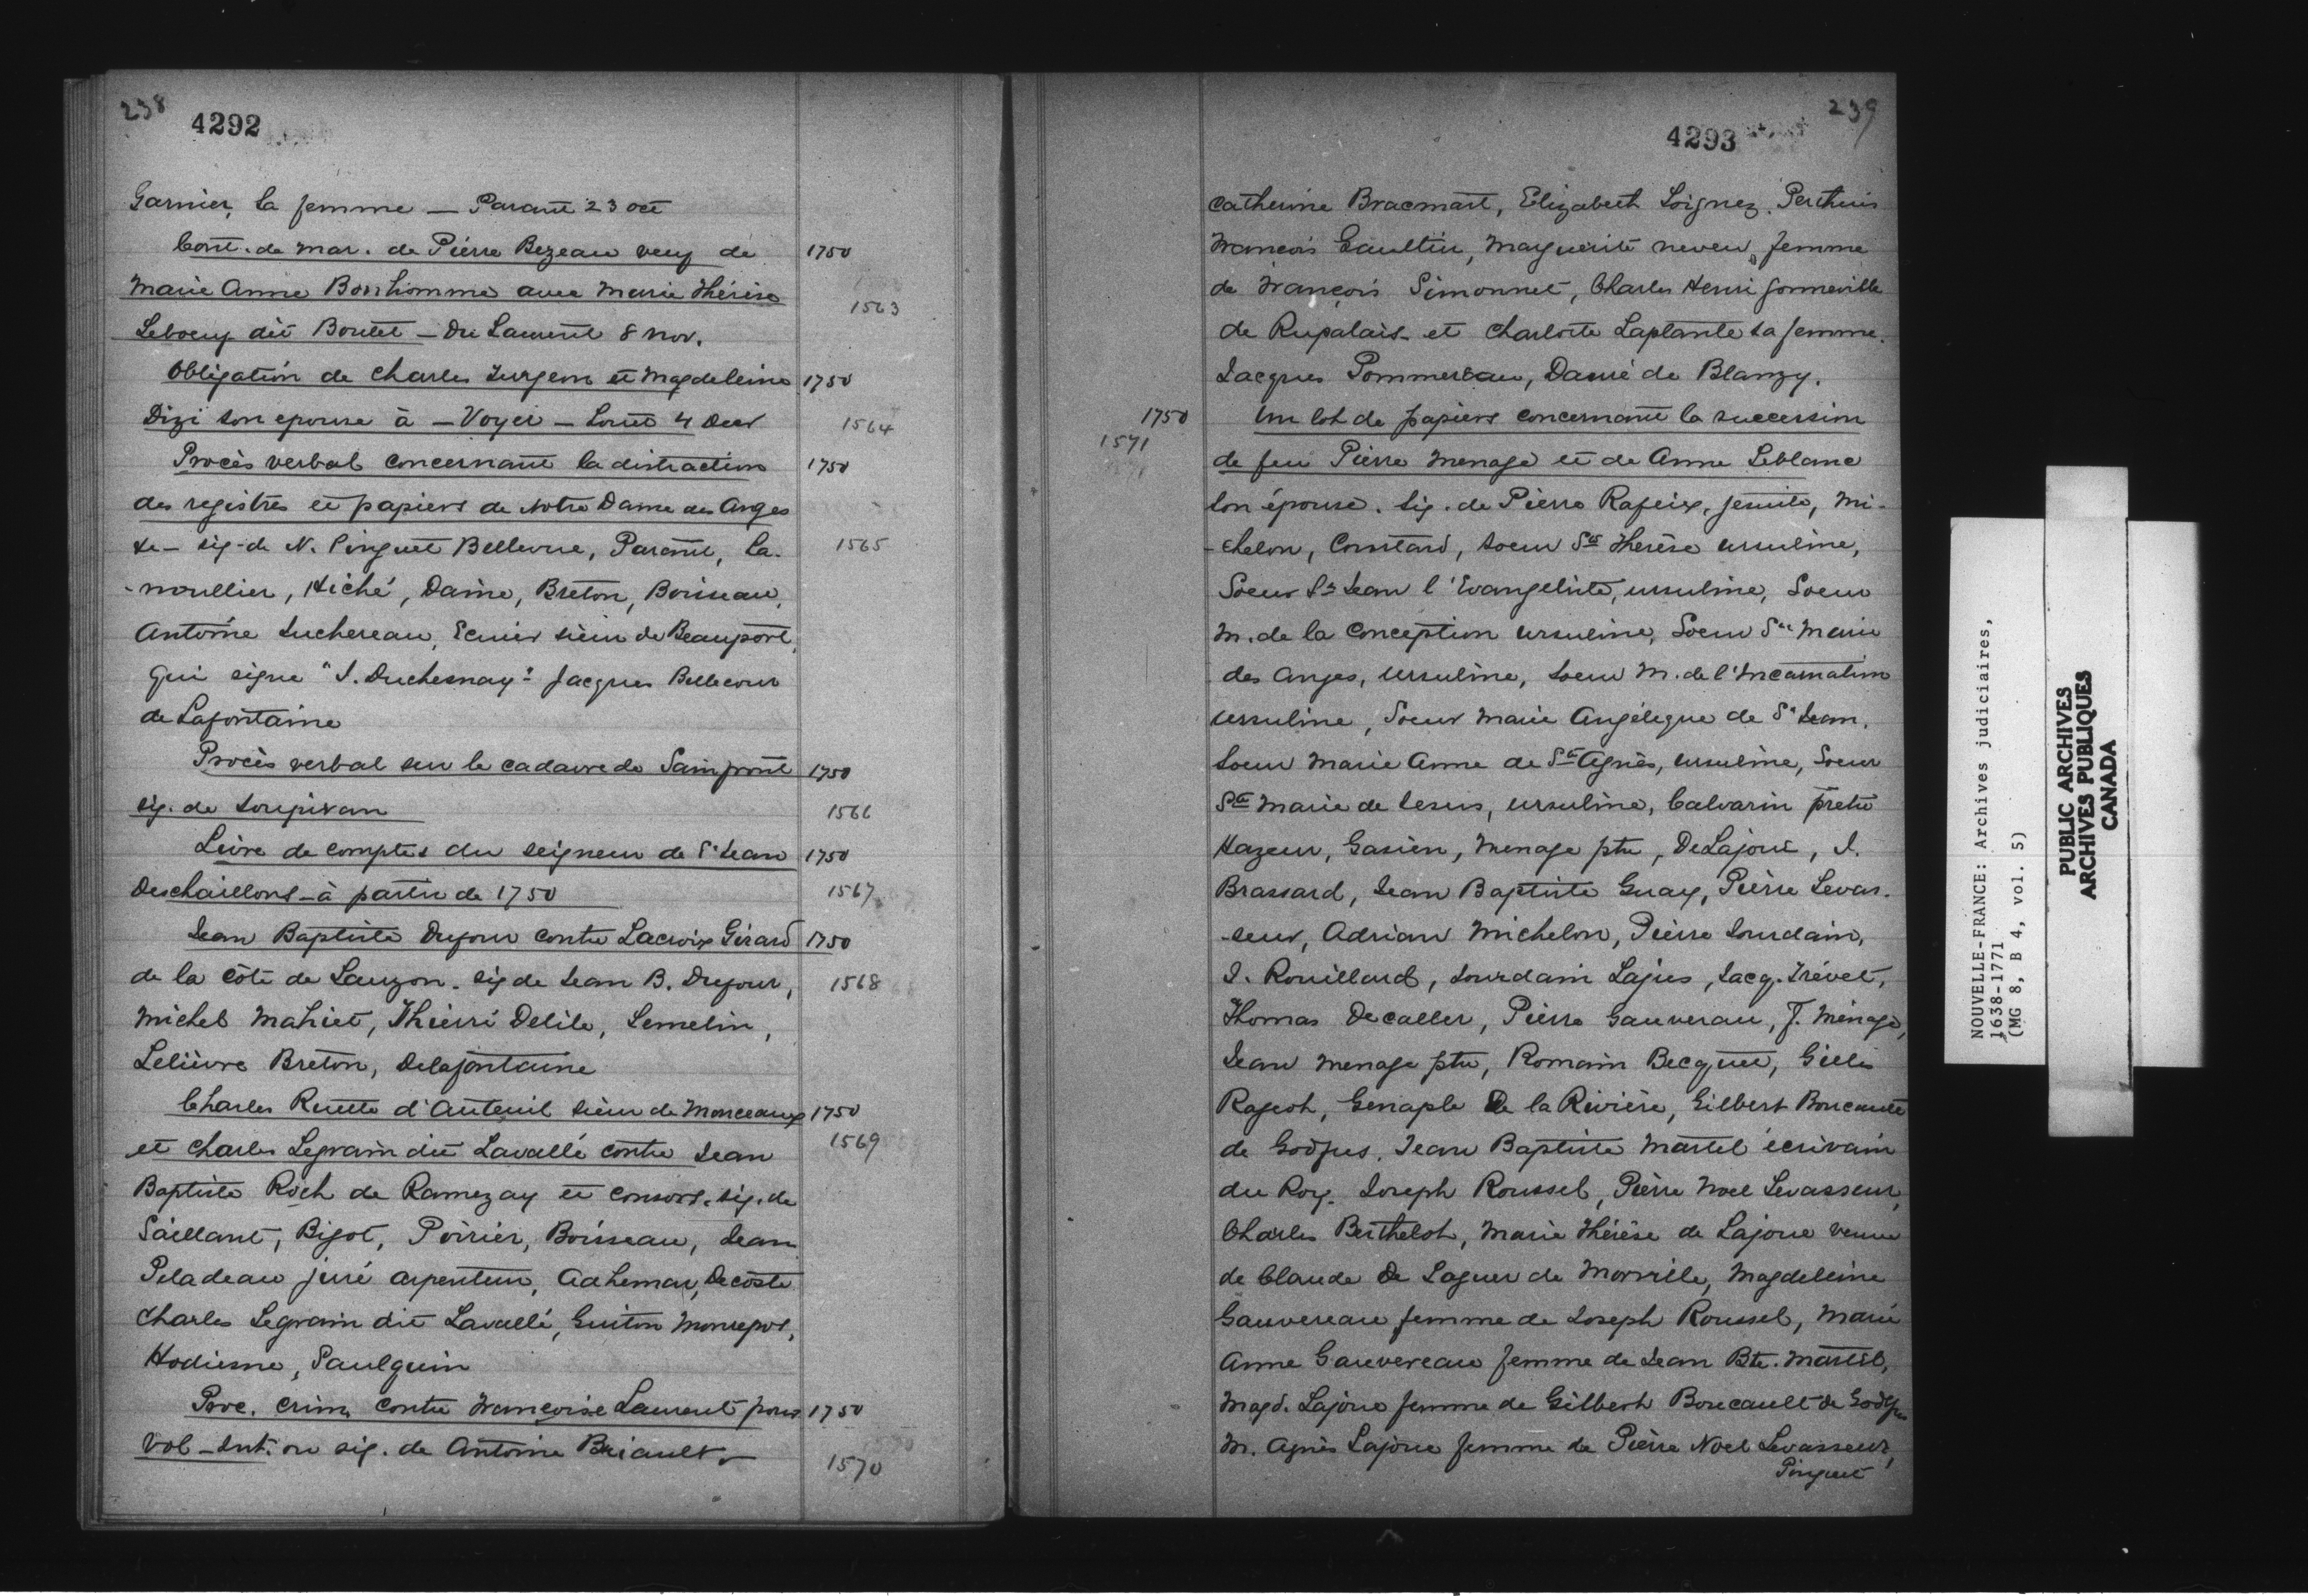 238
4292
Garnier, sa femme — Parant 23 oct
Cont. de mar. de Pierre Bezeau veuf de 1750
Marie Anne Bonhomme avec Marie Thérèse
1563
Leboeuf dit Boutet — Du Laurent 8 nov.
Obligation de Charles Turgeon et Magdeleine 1750
Dizi son epouse à — Voyer — Louet 4 Decr 1564
Procès verbal concernant la distraction 1750
des registres et papiers de Notre Dame des Anges
&c — sig. de N. Pinguet Bellevue, Parant, La- 1565
-noullier, Hiché, Daine, Breton, Boisseau,
Antoine Juchereau, Ecuier sieur de Beauport,
qui signe "J. Duchesnay" Jacques Bellecour
de Lafontaine
Procès verbal sur le cadavre de Sainpront 1750
sig. de Soupiran 1566
Livre de comptes du seigneur de St Jean 1750
Deschaillons — à partir de 1750 1567
Jean Baptiste Dufour contre Lacroix Girard 1750
de la côte de Lauzon. sig de Jean B. Dufour, 1568
Michel Mahiet, Thierri Delile, Lemelin,
Lelièvre Breton, Delafontaine
Charles Ruette d'Auteuil sieur de Monceaux 1750
et Charles Legrain dit Lavallé contre Jean 1569
Baptiste Roch de Ramezay et consors. sig. de
Saillant, Bigot, Poirier, Boisseau, Jean
Peladeau juré arpenteur, Adhemar, Decoste
Charles Legrain dit Lavallé, Guiton Monrepos,
Hodiesne, Paulguin
Proc. crim. contre Françoise Laurent pour 1750
vol — Int. ou sig. de Antoine Briault 1570
239
4293
Catherine Bracmart, Elizabeth Loignez. Perthuis
François Gaultier, Marguerite neveu, femme
de François Simonnet, Charles Henri Jonneville
de Rupalais et Charlotte Laplante sa femme.
Jacques Pommereau, Dauré de Blanzy.
1750 Un lot de papiers concernant la succession
1571
de feu Pierre Menage et de Anne Leblanc
son épouse. Sig. de Pierre Rafeix, jesuite, Mi-
-chelon, Coustard, Soeur Ste Therèse ursuline,
Soeur St Jean l'Evangeliste, ursuline, Soeur
M. de la Conception ursuline, Soeur Ste Marie
des Anges, Ursuline, Soeur M. de l'Incarnation
ursuline, Soeur Marie Angélique de St Jean.
Soeur Marie Anne de Ste Agnès, ursuline, Soeur
Ste Marie de Jesus, ursuline, Calvarin prêtre
Hazeur, Gasien, Menage ptre, DeLajoue, J.
Brassard, Jean Baptiste Guay, Pierre Levas-
-seur, Adrian Michelon, Pierre Jourdain,
J. Rouillard, Jourdain Lajus, Jacq. Trévet,
Thomas Decaller, Pierre Gauverau, J. Ménage,
Jean Menage ptre, Romain Becquet, Gilles
Rageot, Genaple De la Rivière, Gilbert Boucault
de Godfus. Jean Baptiste Martel écrivain
du Roy. Joseph Roussel, Pierre Noel Levasseur,
Charles Berthelot, Marie Thérèse de Lajoue veuve
de Claude De Laguer de Morville, Magdeleine
Gauvereau femme de Joseph Roussel, Marie
Anne Gauvereau femme de Jean Bte. Martel,
Magd. Lajoue femme de Gilbert Boucault de Godfus
M. Agnès Lajoue femme de Pierre Noel Levasseur,
Pinguet
NOUVELLE-FRANCE: Archives judiciaires,
1638-1771
(MG 8, B 4, vol. 5)
PUBLIC ARCHIVES
ARCHIVES PUBLIQUES
CANADA